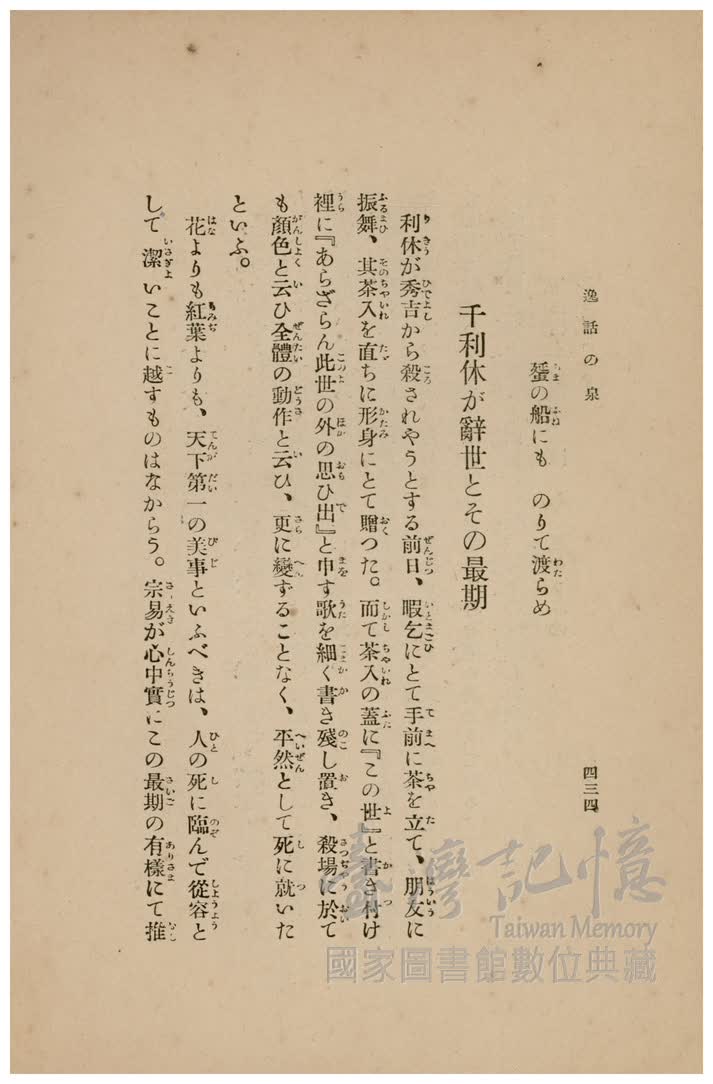 逸話の泉
四三四
蜑の船にも　のりて渡らめ
千利休が辭世とその最期
利休が秀吉から殺されやうとする前日、暇乞にとて手前に茶を立て、朋友に
振舞、其茶入を直ちに形身にとて贈つた。而て茶入の蓋に『この世』と書き付け
裡に『あらざらん此世の外の思ひ出』と申す歌を細く書き殘し置き、殺場に於て
も顏色と云ひ全體の動作と云ひ、更に變ずることなく、平然として死に就いた
といふ。
花よりも紅葉よりも、天下第一の美事といふべきは、人の死に臨んで從容と
して潔いことに越すものはなからう。宗易が心中實にこの最期の有樣にて推
臺灣記憶
Taiwan Memory
國家圖書館數位典藏